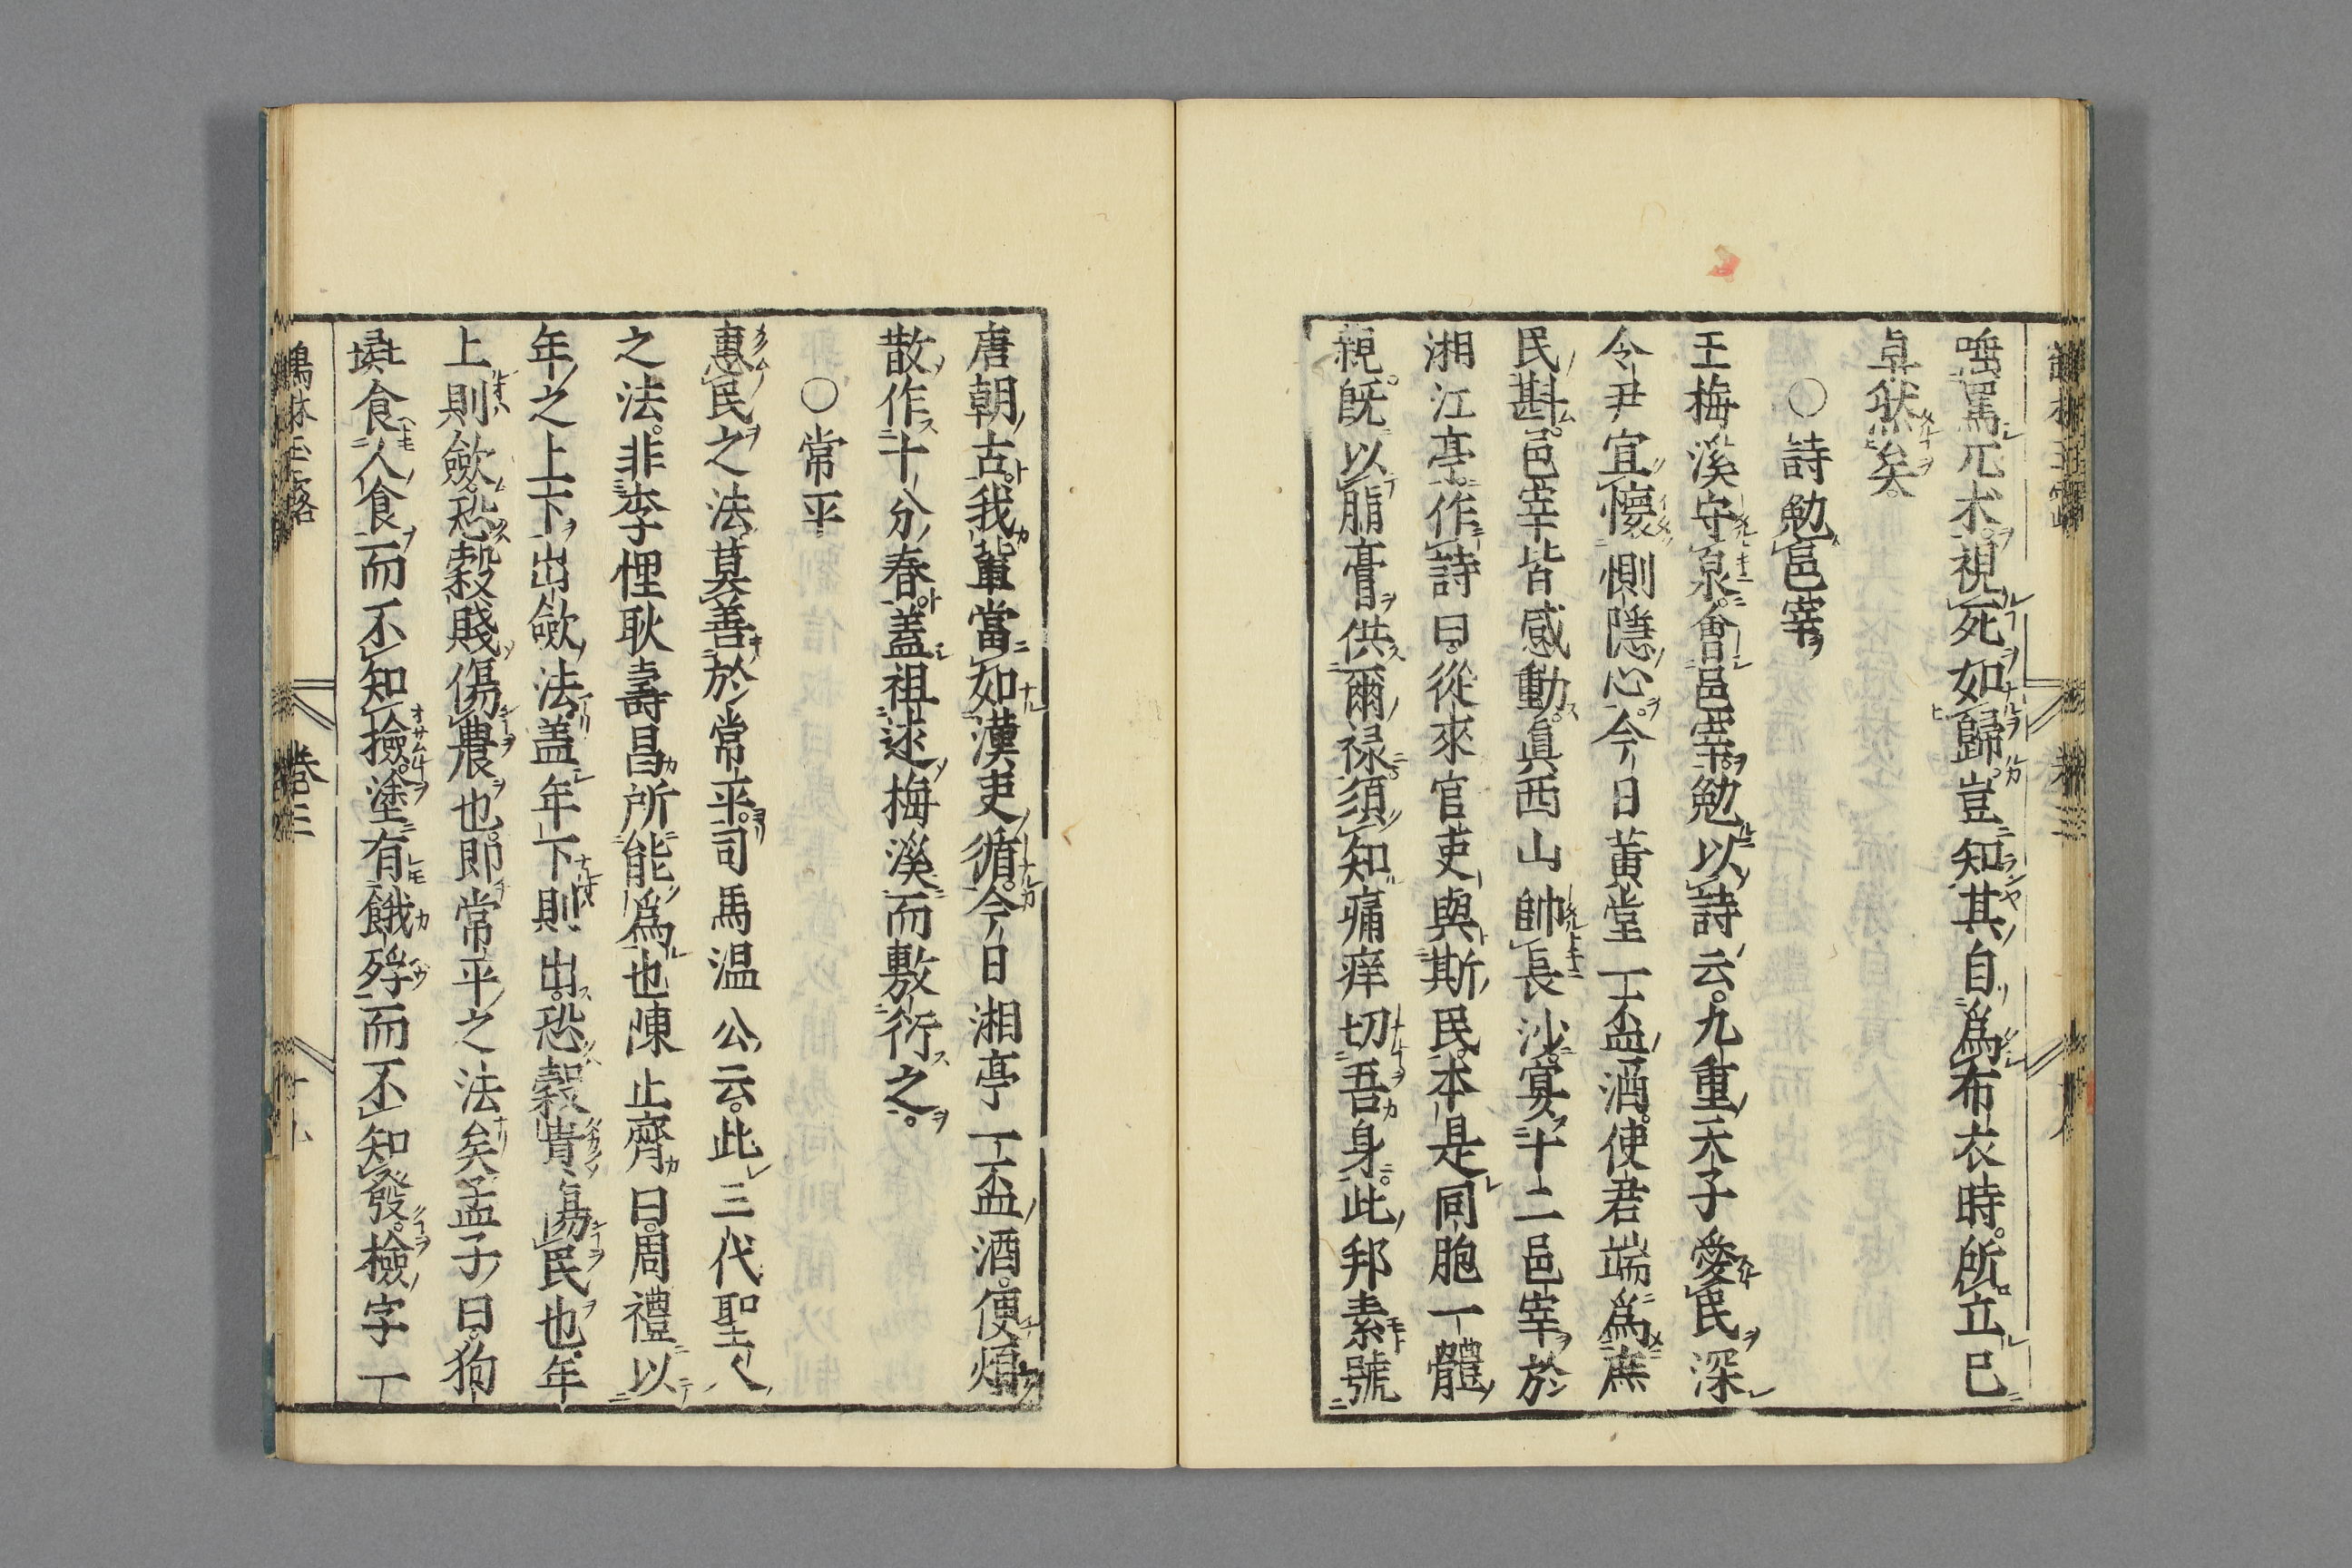 嗤罵兀朮視死如歸豈知其自爲布衣時所立已
卓然矣
○詩勉邑宰
王梅溪守泉會邑宰勉以詩云九重天子愛民深
令尹宜懷惻隱心今日黃堂一盃酒使君端爲庶
民斟邑宰皆感動眞西山帥長沙宴十二邑宰於
湘江亭作詩曰從來官吏與斯民本是同胞一體
親既以脂膏供爾祿須知痛痒切吾身此邦素號
唐朝古我輩當如漢吏循今日湘亭一盃酒便煩
散作十分春蓋祖述梅溪而敷衍之
○常平
惠民之法莫善於常平司馬温公云此三代聖人
之法非李悝耿壽昌所能爲也陳止齋曰周禮以
年之上下出斂法蓋年下則出恐穀貴傷民也年
上則斂恐穀賤傷農也即常平之法矣孟子曰狗
彘食人食而不知撿塗有餓殍而不知發檢字一
鶴林玉露 卷三